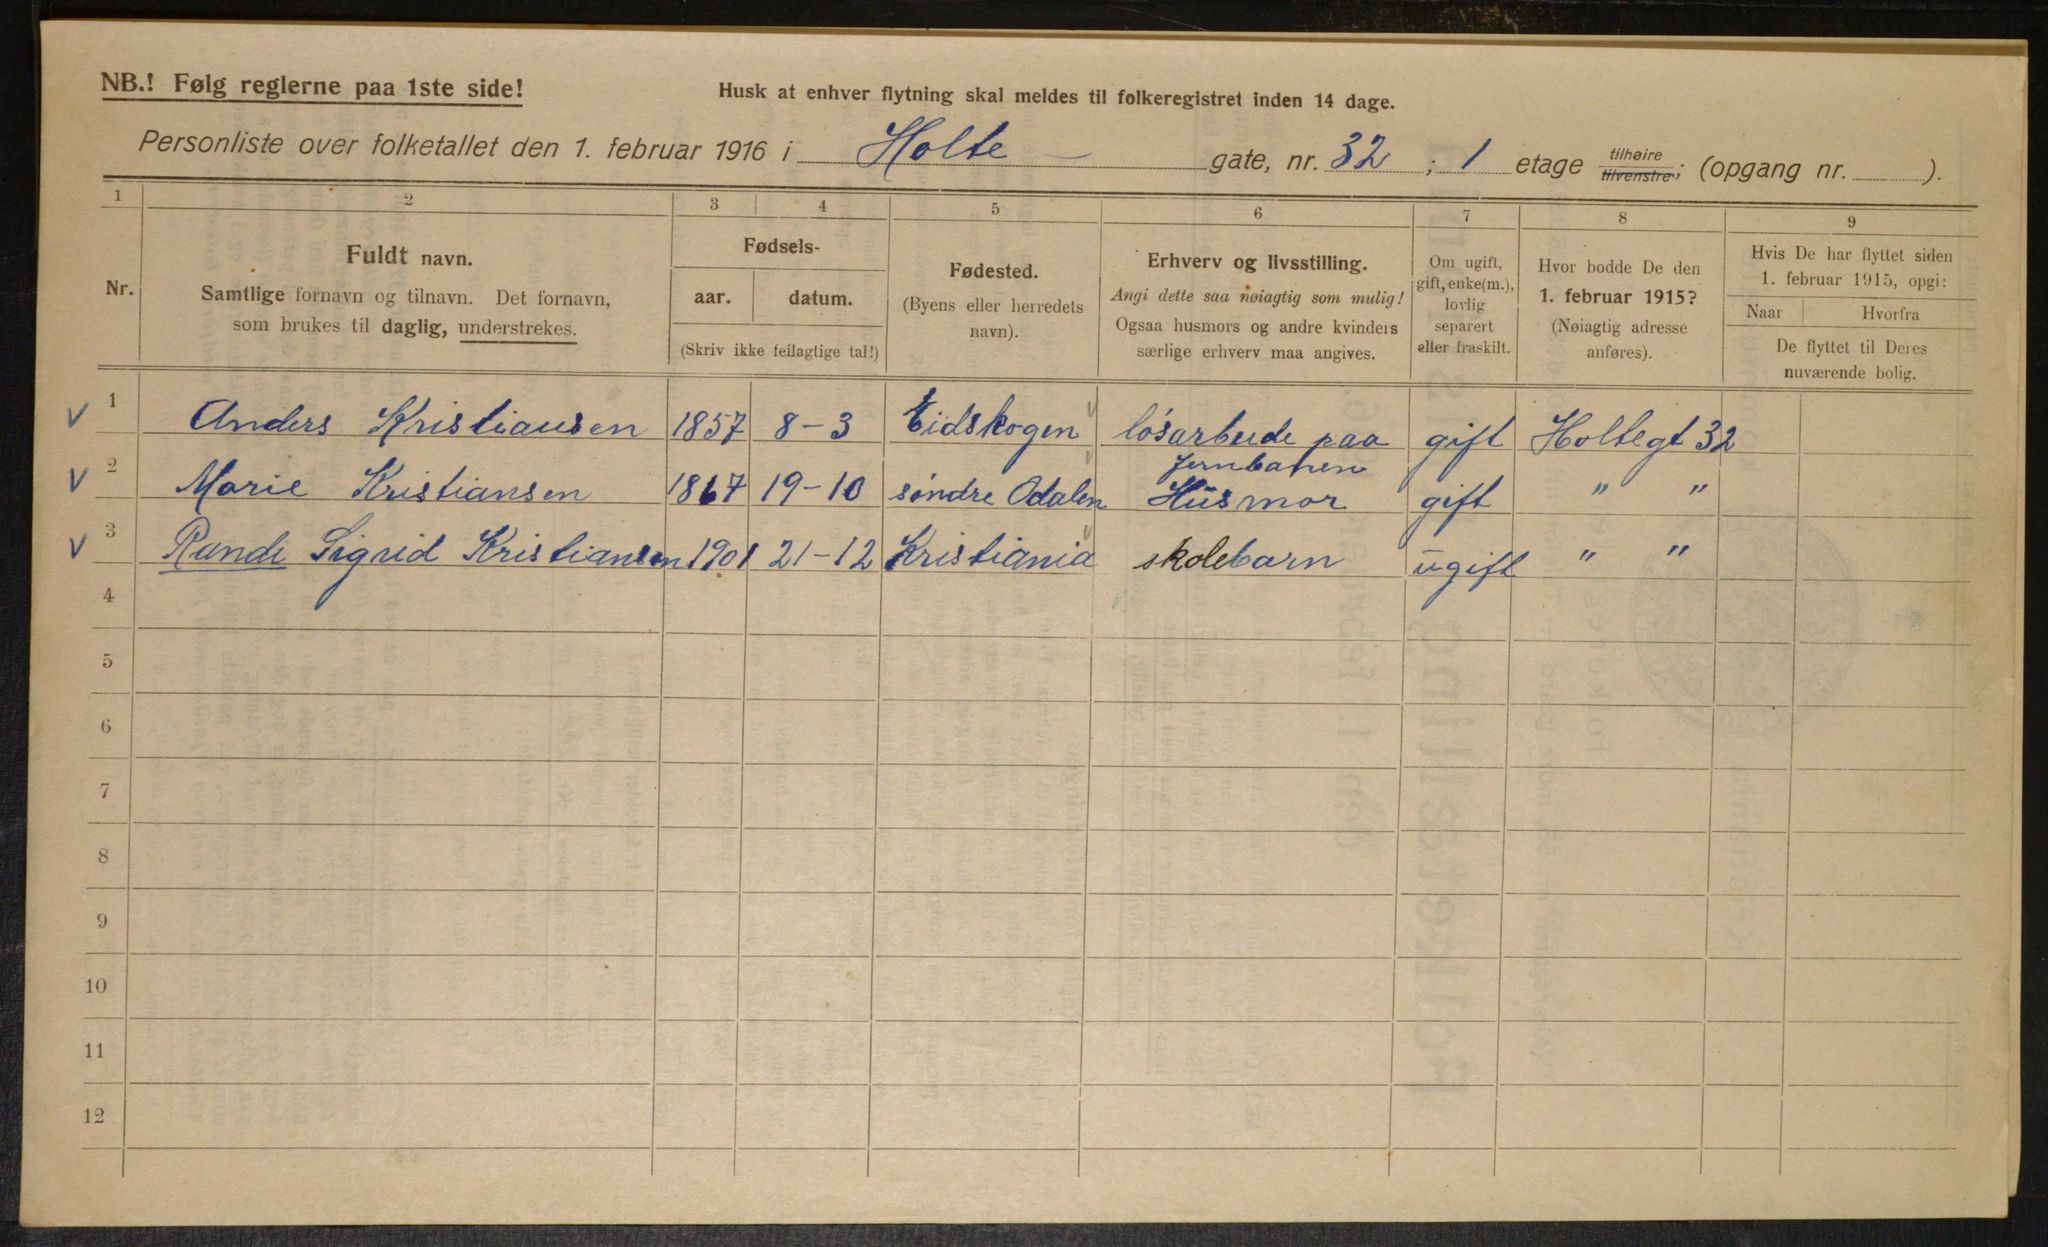 NB.! Følg reglerne paa 1ste side!
Husk at enhver flytning skal meldes til folkeregistret inden 14 dage.
Personliste over folketallet den 1. februar 1916 i Holte gate, nr. 32 ; 1 etage tilhøire tilvenstre; (opgang nr. ).
1 2 3 4 5 6 7 8 9
Nr.
Fuldt navn.
Samtlige fornavn og tilnavn. Det fornavn,
som brukes til daglig, understrekes.
Fødsels-
aar. datum.
(Skriv ikke feilagtige tal!)
Fødested.
(Byens eller herredets
navn).
Erhverv og livsstilling.
Angi dette saa nøiagtig som mulig!
Ogsaa husmors og andre kvinders
særlige erhverv maa angives.
Om ugift,
gift, enke(m.),
lovlig
separert
eller fraskilt.
Hvor bodde De den
1. februar 1915?
(Nøiagtig adresse
anføres).
Hvis De har flyttet siden
1. februar 1915, opgi:
Naar Hvorfra
De flyttet til Deres
nuværende bolig.
V 1 Anders Kristiansen 1857 8-3 Eidskogen løsarbeide paa gift Holtegt 32
Jernbanen
V 2 Marie Kristiansen 1867 19-10 søndre Odalen Husmor gift " "
V 3 Randi Sigrid Kristiansen 1901 21-12 Kristiania skolebarn ugift " "
4
5
6
7
8
9
10
11
12